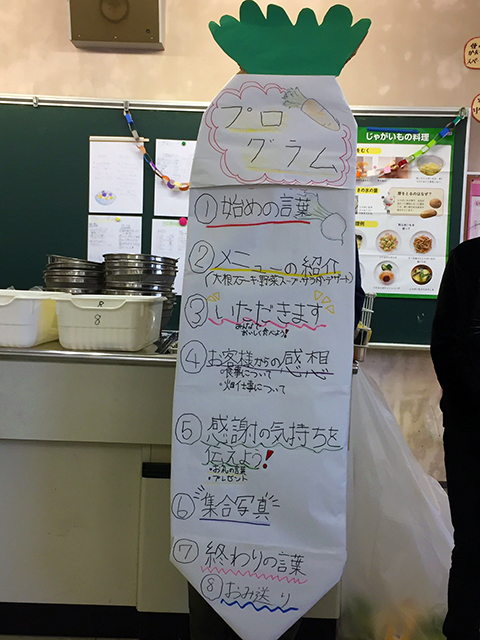 プログラム
①始めの言葉
②メニューの紹介
(大根ステーキ・野菜スープ・サラダ・デザート)
③いただきます
みんなで
おいしく食べよう!
④お客様からの感想
・食事について
・畑仕事について
⑤感謝の気持ちを
伝えよう!
・お礼の言葉
・プレゼント
⑥集合写真
⑦終わりの言葉
⑧おみ送り
じゃがいもの料理
8